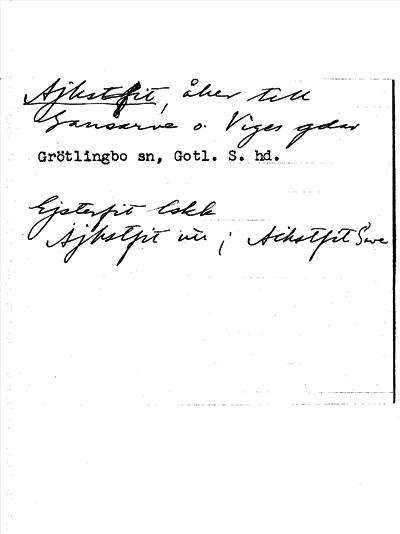 Ajkstfit, åker till
Gansarve o. Viges gdar
Grötlingbo sn, Gotl. S. hd.
Ejsterfit lskk
Ajkstfit ; Aikstfit